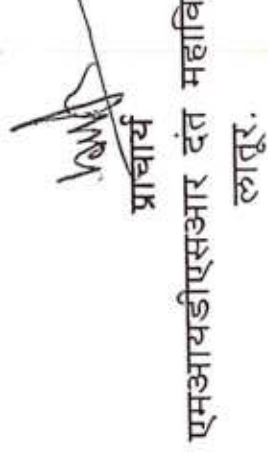 प्राचार्य
एमआयडीएसआर दंत महावि
लातूर.